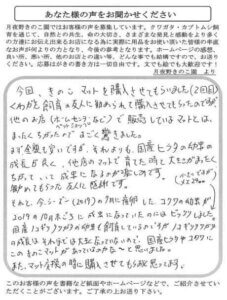 あなた様の声をお聞かせください
月夜野きのこ園ではお客様の声を募集しています。クワガタ・カブトムシ飼
育を通じて、自然との共生、命の大切さ、さまざまな発見と感動をより多く
の方達にお伝えするとともにお客様の
なお声が何よりの力となり、今後の様々な
良い所、悪い所、他のお店との違い等、どんな事でも結構ですので、お送り
ください。応募はがきの書き方は一切自由です。文でも絵でも大歓迎です！
月夜野きのこ園 より
今回、きのこマットを購入させてもらいました(2回目)
くわがた飼育の友人に勧められて購入させてもらったのですが
他のお店(ホームセンターなど)で販売しているマットとは、
まったくちがったのですごく驚きました。
まず全然臭いですが、それよりも、国産ヒラタの幼虫の
成長が良く、他店のマットで育てた時と大きさがまったく
ちがって、いて成虫になるのが楽しみです。
勧めてもらった友人に感謝です。
それと、今シーズン(2019)の7月に産卵したコクワの幼虫が
2019の10月末ごろに成虫になっていたのにはビックリしました。
国産ノコギリクワガタの幼虫も飼育しているのですが
の成長はそれほどは大きくなっていないので、国産ヒラタやコクワに
このきのこマットがあっているのかな〜と思いました。
また、マット交換の時に購入させてもらおうと思ってます。
このお客様の声を書籍など紙面やホームページなどで、ご紹介させてい
ただくことがございます。ご了承の上お送り下さい。